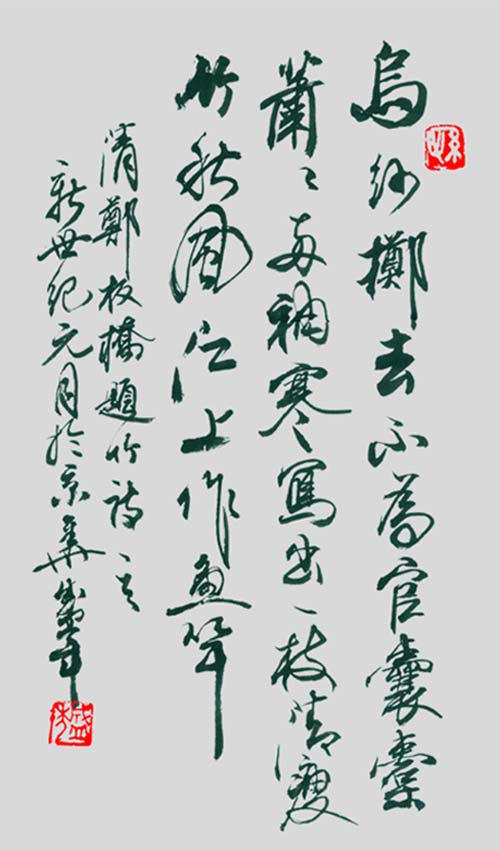 烏紗擲去不為官囊橐
蕭〻兩袖寒寫出一枝清瘦
竹秋風江上作魚竿
清鄭板橋題竹詩一
新世紀元月於京華